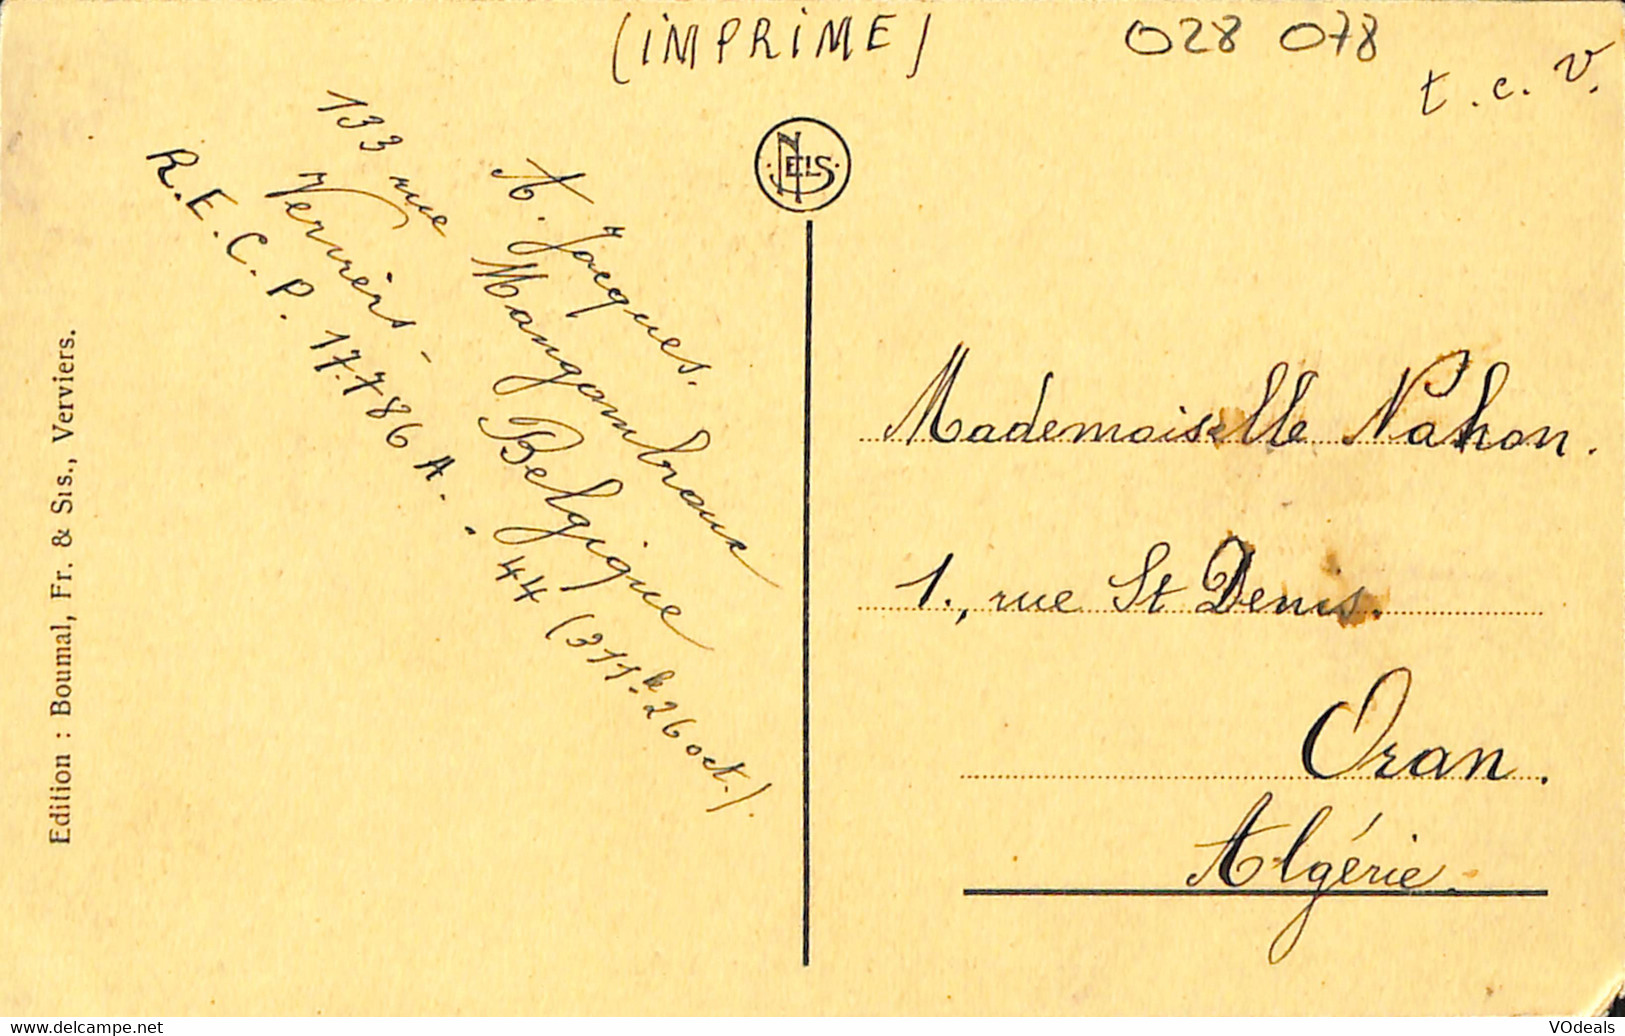 (IMPRIME)
028 078
t.c.v.
A. Jacques.
133 rue Mangombroux
Verviers - Belgique
R.E.C.P. 17.786 A. - 44 (311. 26 oct.)
NELS
Mademoiselle Nahon.
1., rue St Denis.
Oran.
Algérie.
Edition : Boumal, Fr. & Sis., Verviers.
www.delcampe.net
VOdeals